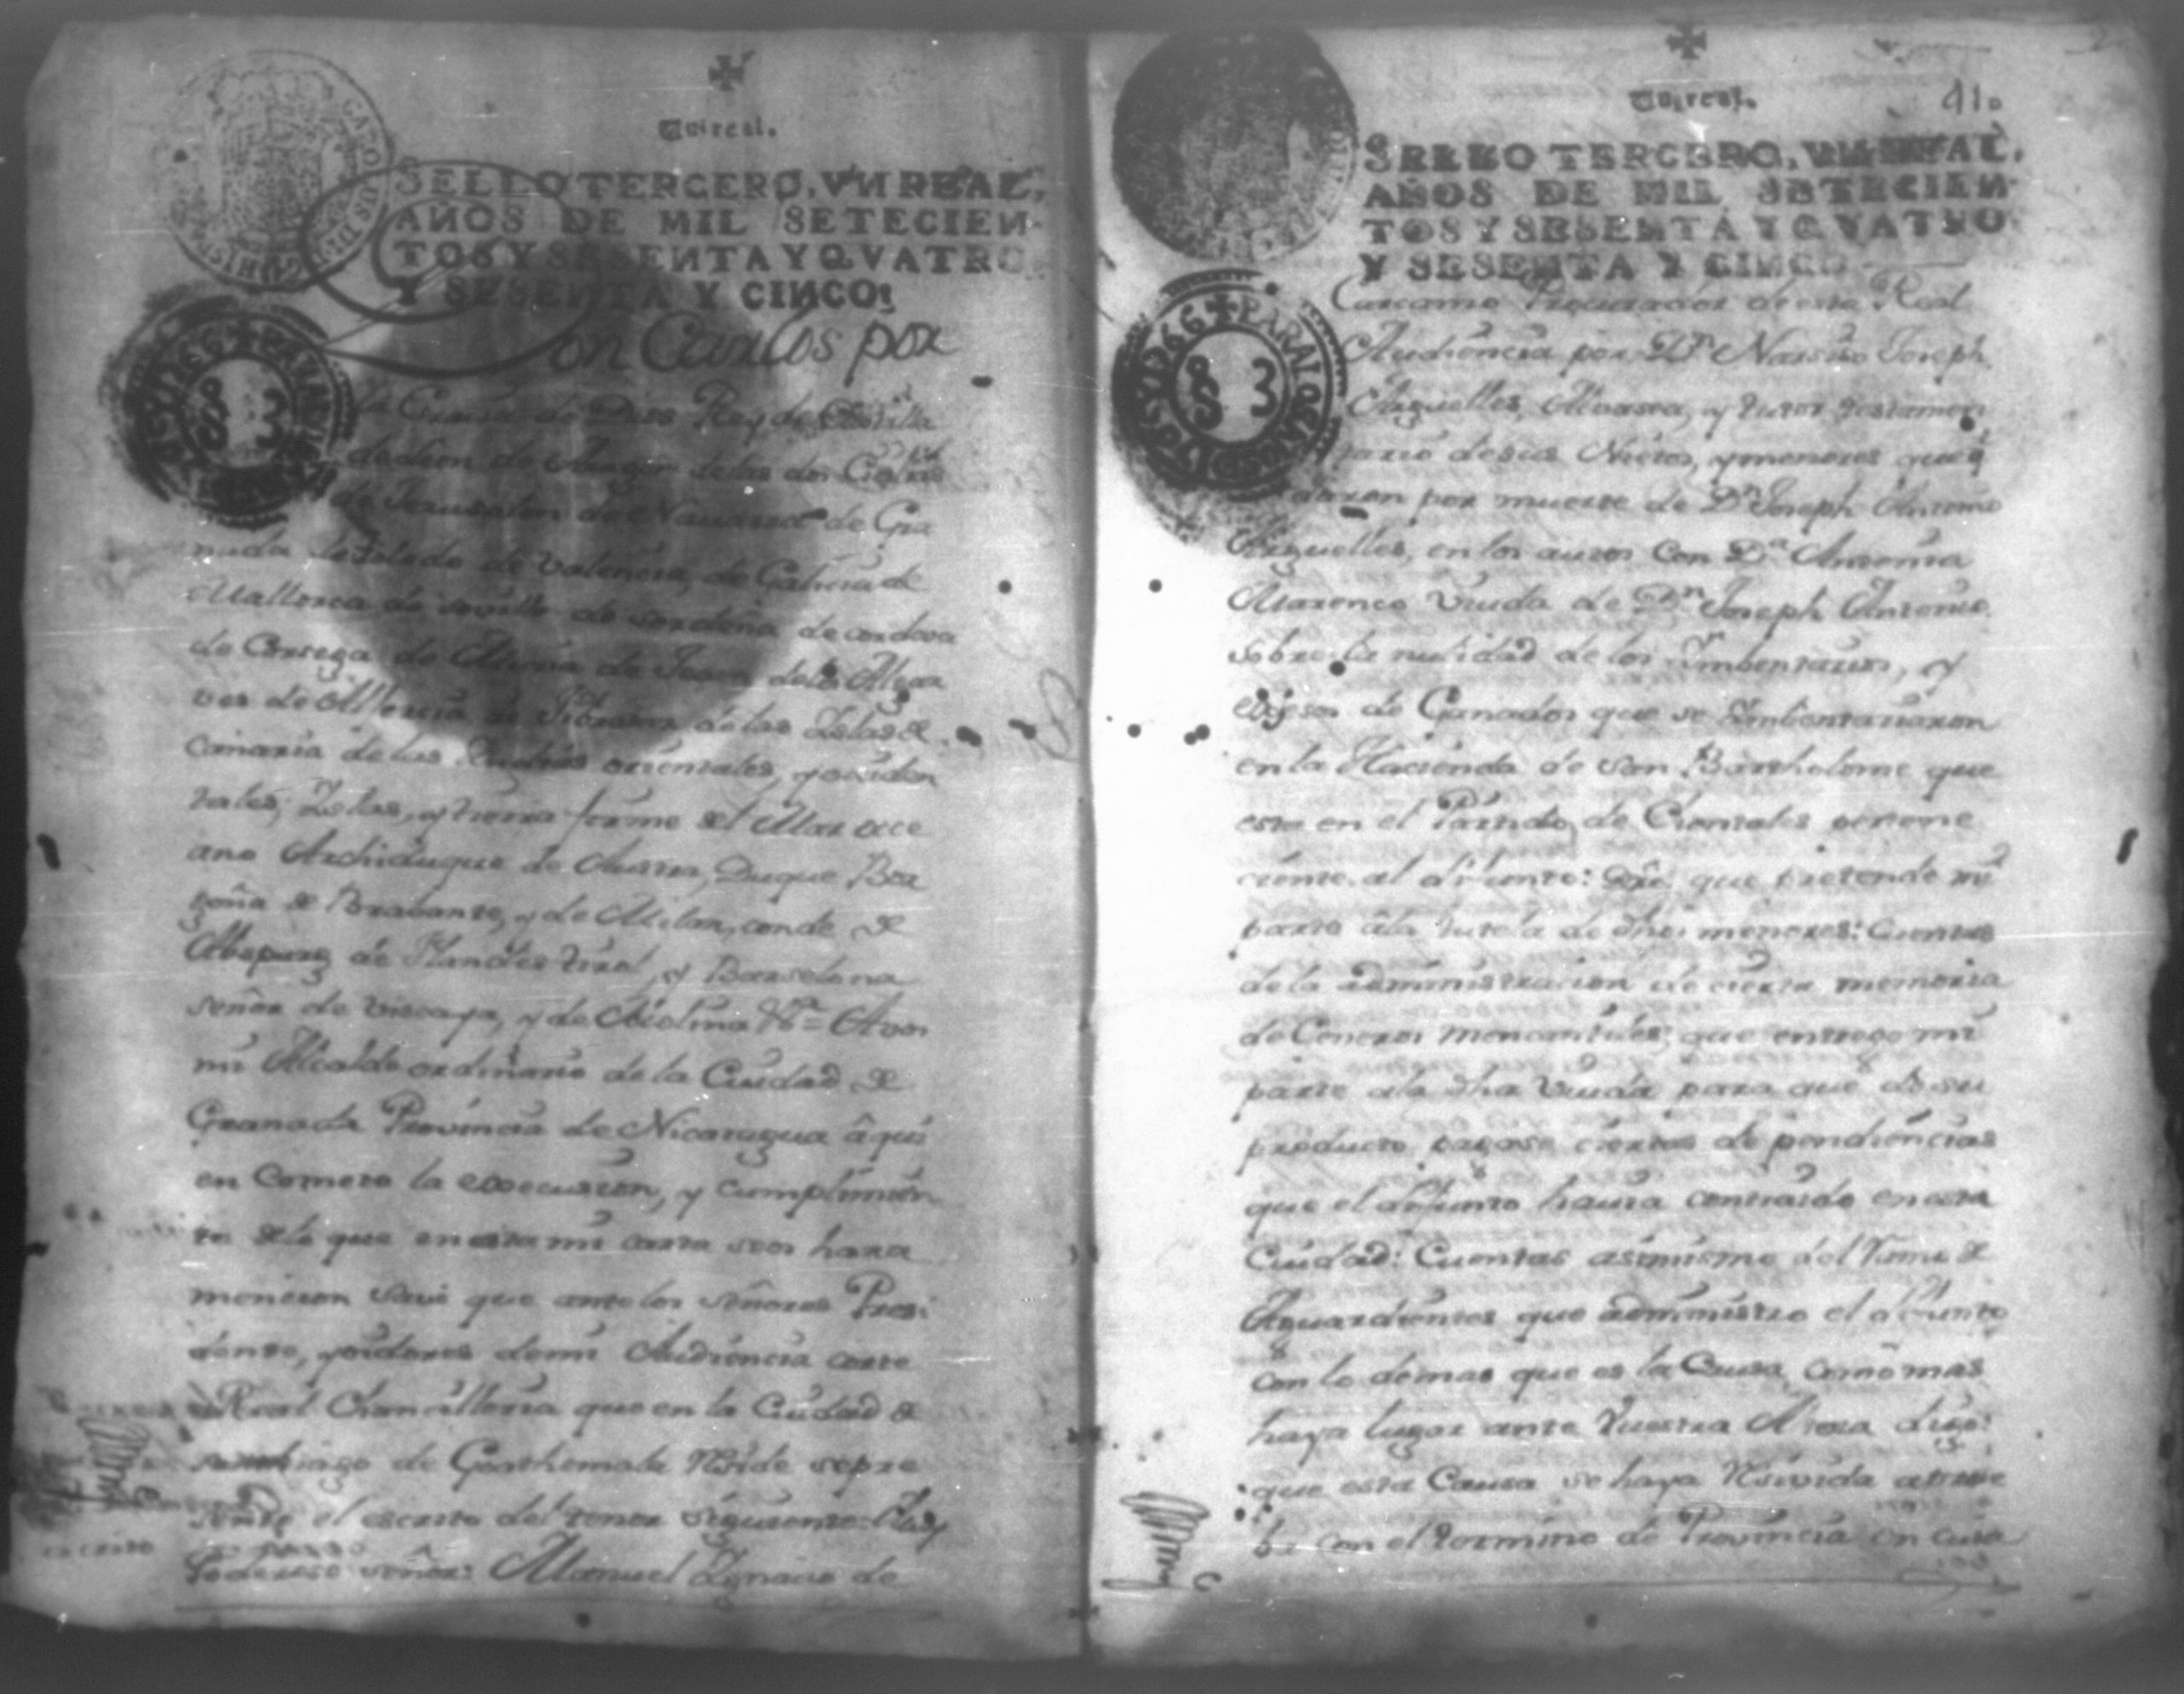 Vn real.
SELLO TERCERO, VN REAL,
AÑOS DE MIL SETECIEN-
TOS Y SESENTA Y QVATRO
Y SESENTA Y CINCO:
Don Carlos por
la Gracia de Dios Rey de Castilla
de Leon de Aragon de las dos Cicilias
de Jerusalen de Navarra de Gra
nada de toledo de valencia, de Galicia de
Mallorca de sevilla de cerdeña de cordova
de Corsega de Murcia de Jaen de los Algar
ves de Algecira de Jibraltar de las Islas de
Canaria de las Indias orientales, y occiden
tales, Islas, y tierra firme del Mar occe
ano Archiduque de Austria, Duque Bor
goña de Brabante, y de Milan, conde de
Abspurg de Flandes tirol, y Barselona
señor de viscaya, y de Molina &a = A vos
mi Alcalde ordinario de la Ciudad de
Granada Provincia de Nicaragua â qui
en Cometo la execusion, y cumplimien
to de lo que en esta mi carta se os hara
mencion Save que ante los señores Presi
dente, y oidores de mi Audiencia corte
Real Chancilleria que en la Ciudad de
Santhiago de Goathemala Reside se pre
sentó el escrito del tenor siguiente: Muy
escrito
Poderoso señor: Manuel Ignacio de
Vn real.
41.
SELLO TERCERO, VN REAL,
AÑOS DE MIL SETECIEN-
TOS Y SESENTA Y QVATRO
Y SESENTA Y CINCO
Carcamo Procurador de esta Real
Audiencia por Dn Narsiso Joseph
Arguelles, Alvasea, y tutor testamen
tario de sus Nietos, y menores que q
daron por muerte de Dn Joseph Antonio
Arguelles, en los autos con Da Antonia
Marenco Viuda de Dn Joseph Antonio
sobre la nulidad de los Imbentarios, y
exseso de Ganados que se Imbentariaron
en la Hacienda de San Bartholome que
esta en el Partido de Chontales pertene
ciente al difunto: que pretende mi
parte â la tutela de dhos menores: Cuentas
de la administracion de cierta memoria
de Generos mercantiles, que entrego mi
parte a la dha Viuda para que de su
producto pagase ciertas dependiencias
que el difunto havia contraido en esta
Ciudad: Cuentas asimismo del Ramo de
Aguardientes que administro el difunto
con lo demas que es la Causa, como mas
haya lugar ante Vuestra Alteza digo:
que esta Causa se haya Resivida a prue
ba con el termino de Provincia en cuio
8 S 3
PARA LOS AÑOS D 1765 Y 1766
8 S 3